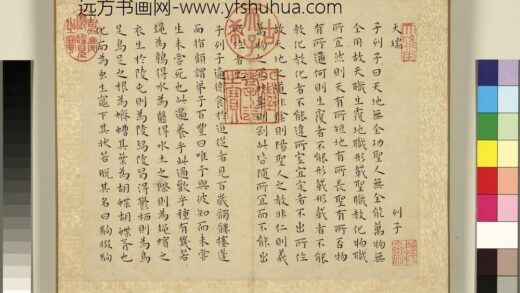 远方书画网-www.yfshuhua.com
天瑞
列子
子列子曰天地無全功聖人無全能萬物無
全用故天職生覆地職形載聖職教化物職
所宜然則天有所短地有所長聖有所否物
有所通何則生覆者不能形載形載者不能
教化教化者不能違所宜宜定者不出所位
故天地之道非陰則陽聖人之教非仁則義
萬物之宜非柔則剛此皆隨所宜而不能出
所位者也
子列子適衛食於道從者見百歲髑髏攓蓬
而指顧謂弟子百豐曰唯予與彼知而未嘗
生未嘗死也此過養乎此過歡乎種有幾若
蠅為鶉得水為㡭得水土之際則為蠅蠙之
衣生於陵屯則為陵舄陵舄得鬱栖則為烏
足烏足之根為蠐螬其葉為胡蝶胡蝶胥也
化而為蟲生竈下其狀若脫其名曰駒掇駒